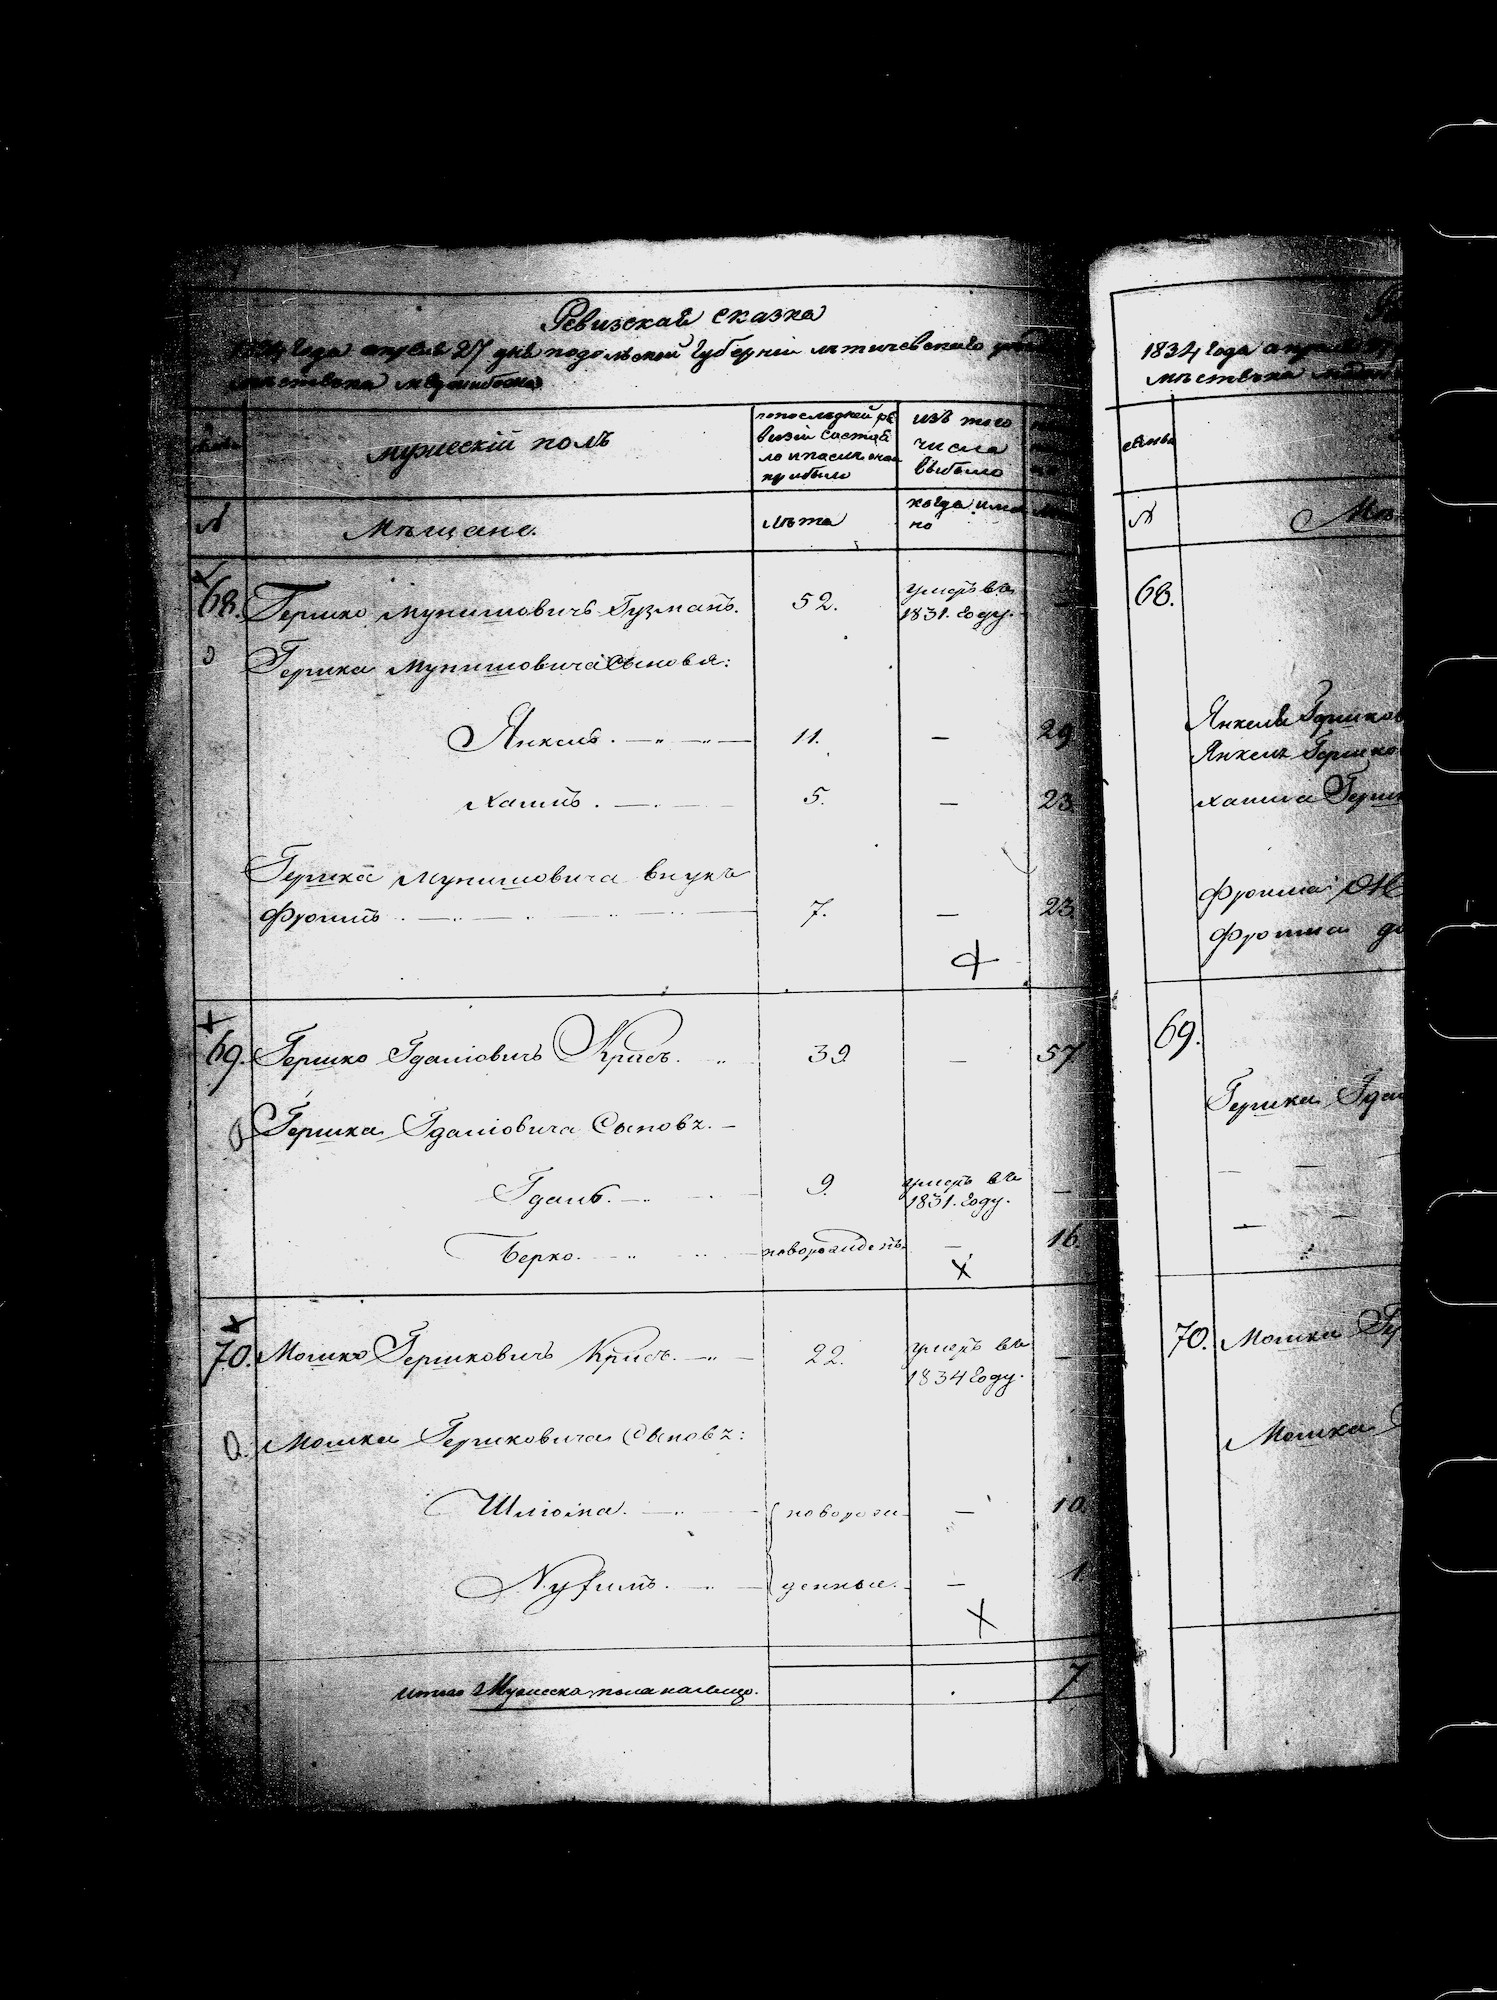 Ревизская сказка
1834 года апреля 27 дня подольской губерніи летичевского уезда
местечка меджибожа
семьи
мужескій полъ
попоследней ре
визіи состоя
ло ипосле онаи
прибыло
изъ того
числа
выбыло
№
Мещане.
лета
когда имян
но
68. Гершко Мунишовичъ Гузманъ. 52. умеръ въ
1831. году. —
Гершка Мунишовича Сыновя:
Янкель. 11. — 29
Хаимъ. 5. — 23
Гершка Мунишовича внукъ
Фроимъ 7. — 23.
69. Гершко Гдаліовичъ Крисъ. 39 — 57
Гершка Гдаліовича Сыновъ. —
Гдаль. 9. умеръ въ
1831. году. —
Берко. новорожденъ — 16.
70. Мошко Гершковичъ Крисъ. 22. умеръ въ
1834 году. —
Мошка Гершковича Сыновъ:
Шліома. новорож — 10.
Нухимъ. денные. — 1
итого Мужеска пола налицо. 7
1834 года апреля
местечка
семьи
№
68.
Янкеля Гершков
Янкель Гершко
Хаима Герш
Фроима
Фроима
69.
Гершка Гда
70. Мошка
Мошка